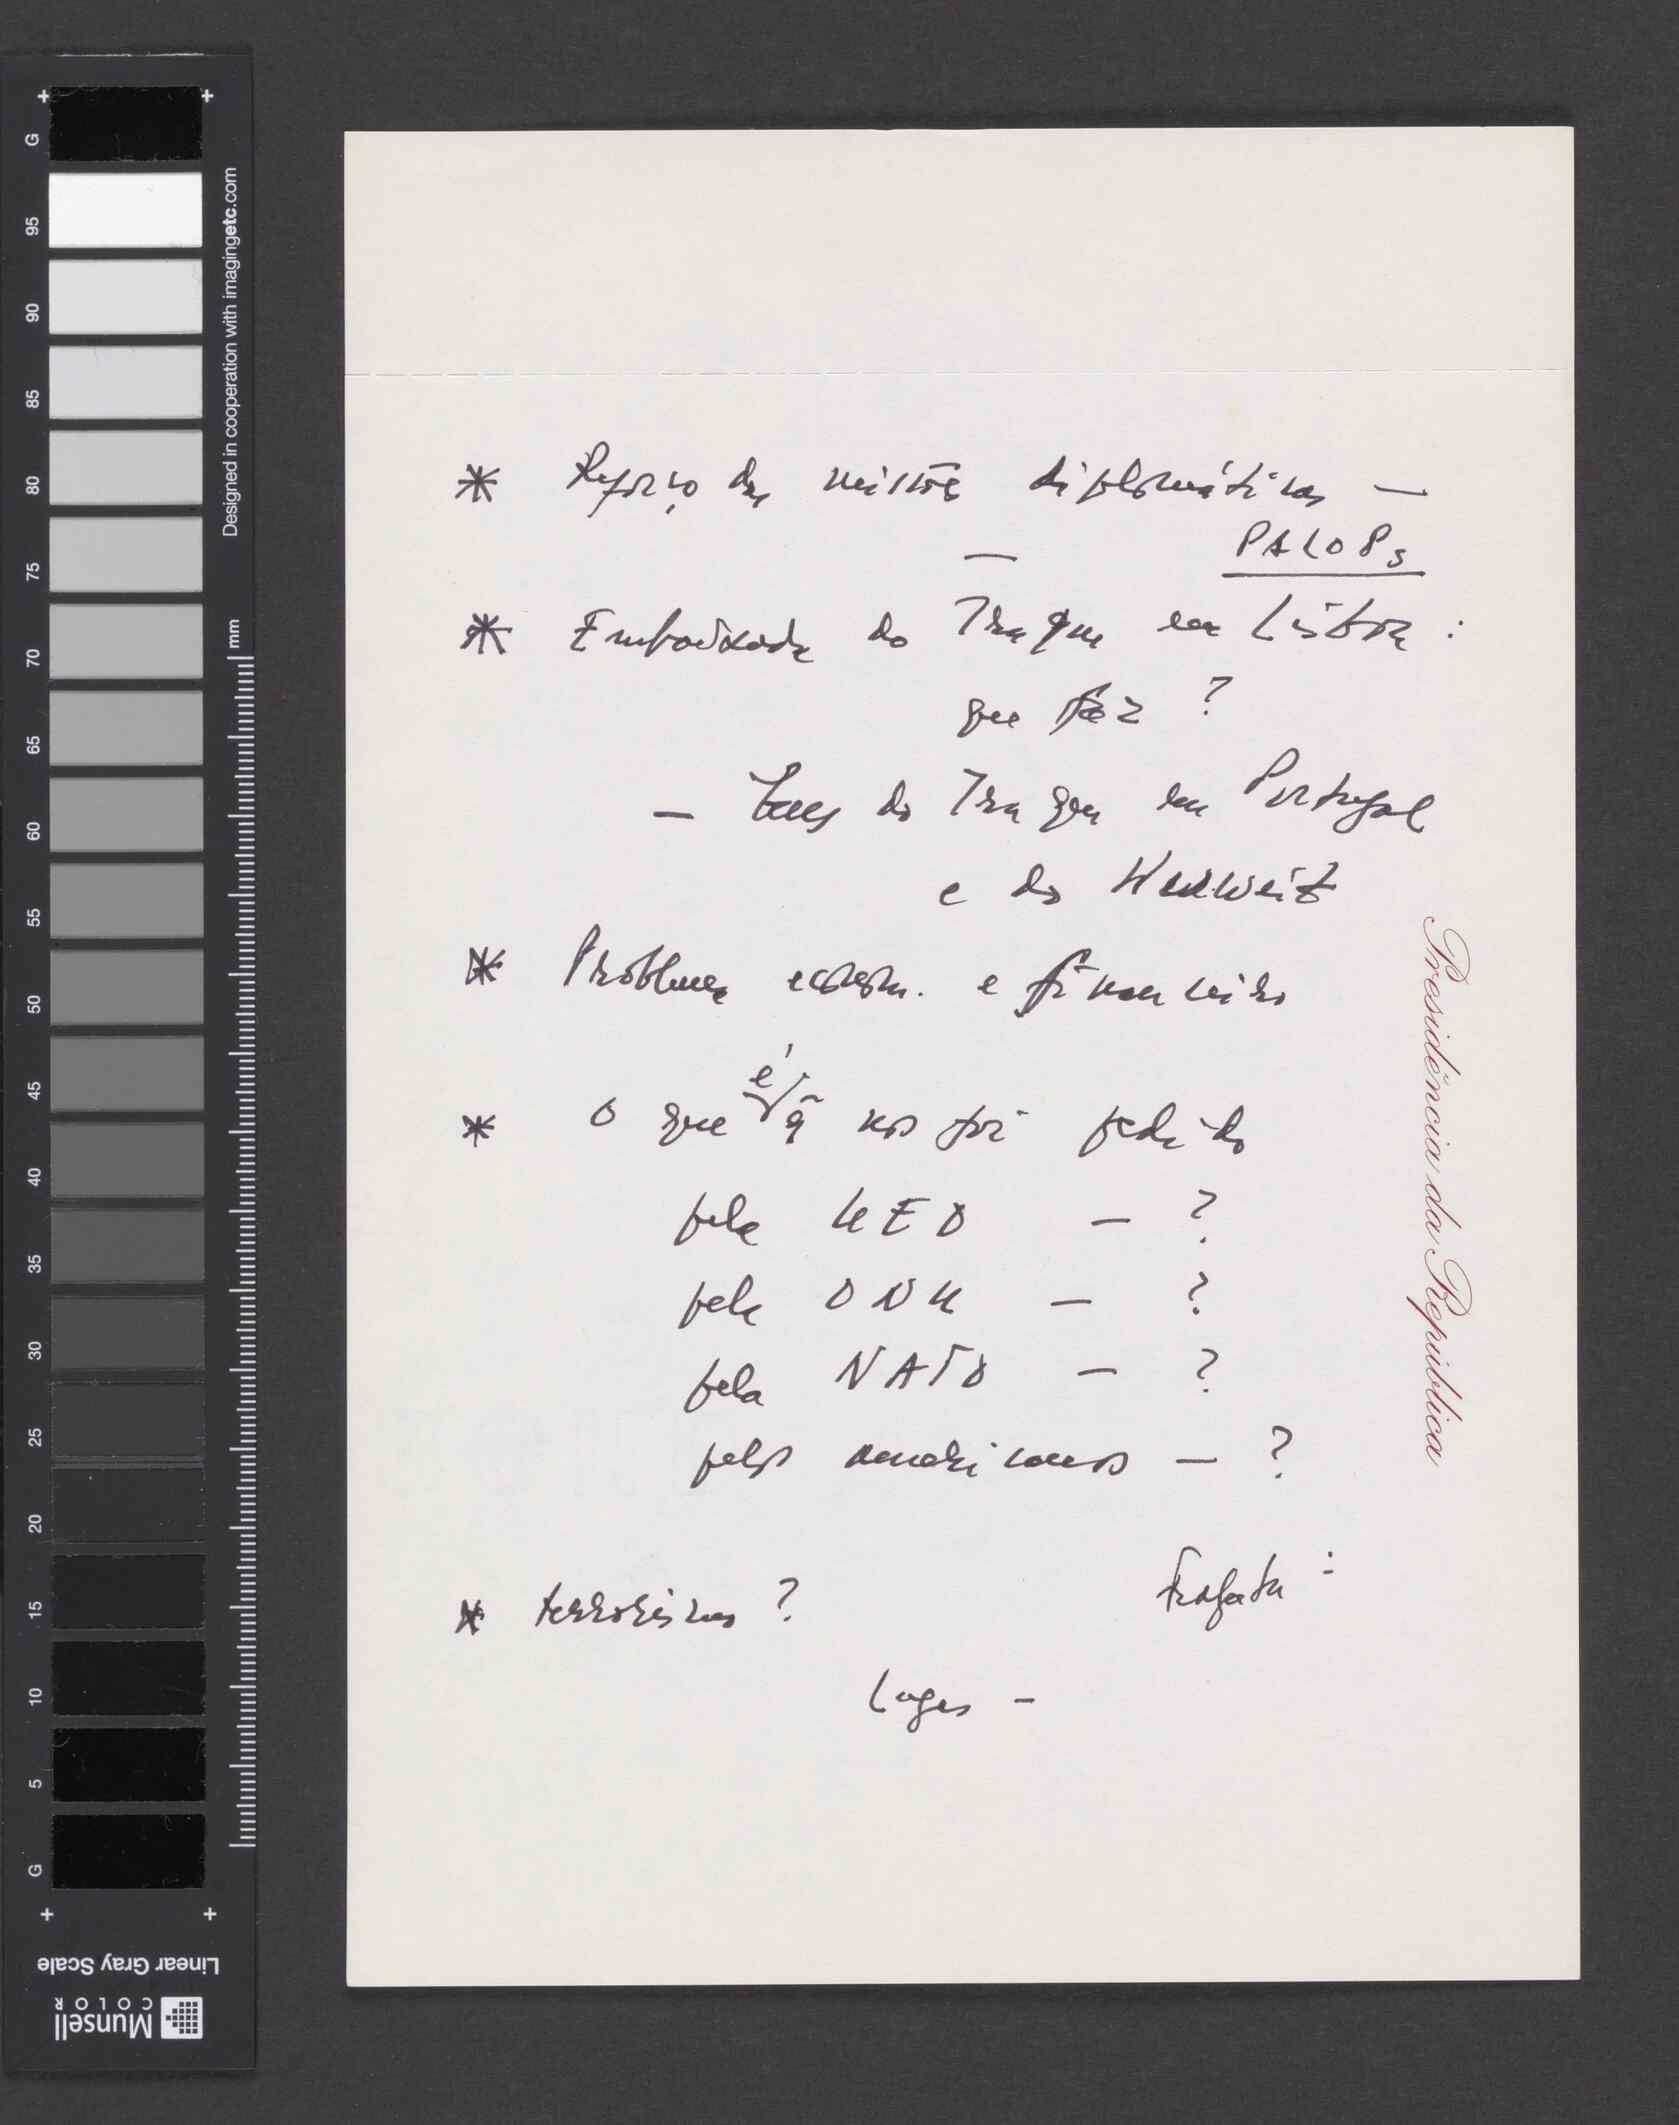 * Reforço das missões diplomáticas —
— PALOPs
* Embaixada do Iraque em Lisboa :
que faz ?
— do Iraque em Portugal
e do Kuweit
* Problema econom. e financeiro
* O que é q̃ nos foi pedido
pela UEO — ?
pela ONU — ?
pela NATO — ?
pelos americanos — ?
Fragata :
* terrorismo ?
Lages —
Presidência da República
G 95 90 85 80 75 70 65 60 55 50 45 40 35 30 25 20 15 10 5 G
Designed in cooperation with imagingetc.com
mm
Linear Gray Scale
Munsell
COLOR